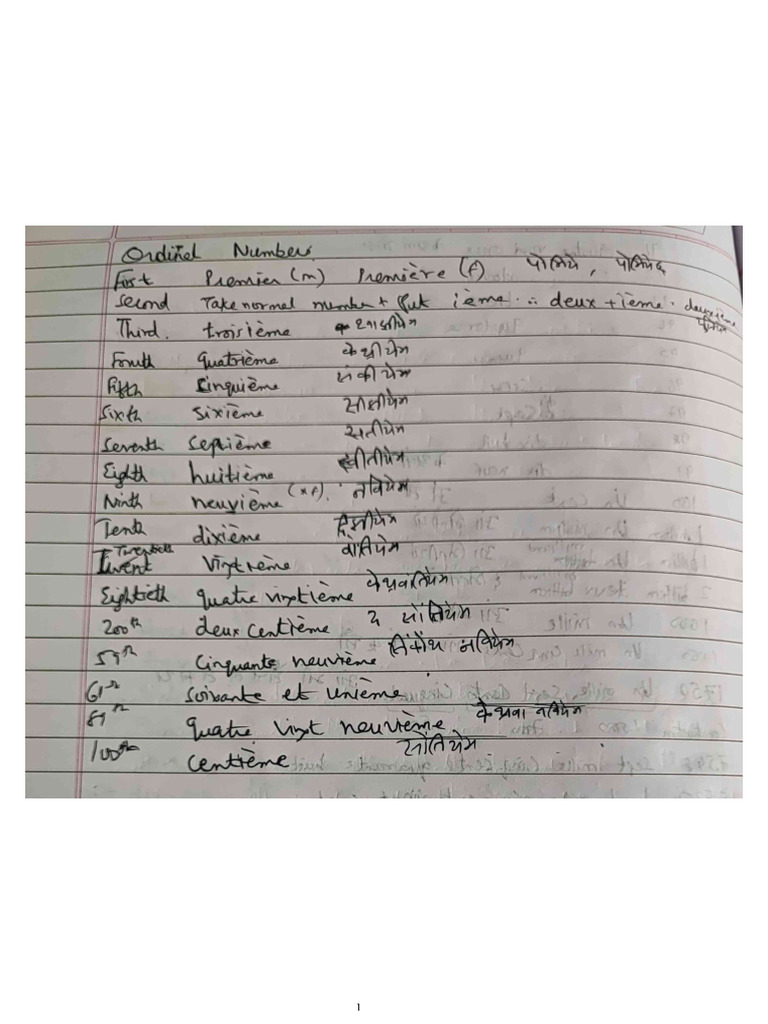 Ordinal Number.
First Premier (m) Première (f) पोमिये , पोमियेद
Second Take normal number + Put ième ∴ deux + ième . deuxième
Third. troisième
Fourth quatrième केथ्रीयेम
Fifth cinquième संकीयेम
Sixth sixième सीक्षीयेम
Seventh septième सतीयेम
Eighth huitième
Ninth neuvième (x f) . नवियेम
Tenth dixième
Twentieth Vingtième वोंतियेम
Eightieth quatre vingtième केथ्रवातियेम
200th deux centième द सोंतियेम
59th Cinquante neuvième नवियेम
61st Soixante et unième .
89th quatre vingt neuvième केथ्रवा नवियेम
100th centième सोंतियेम
1